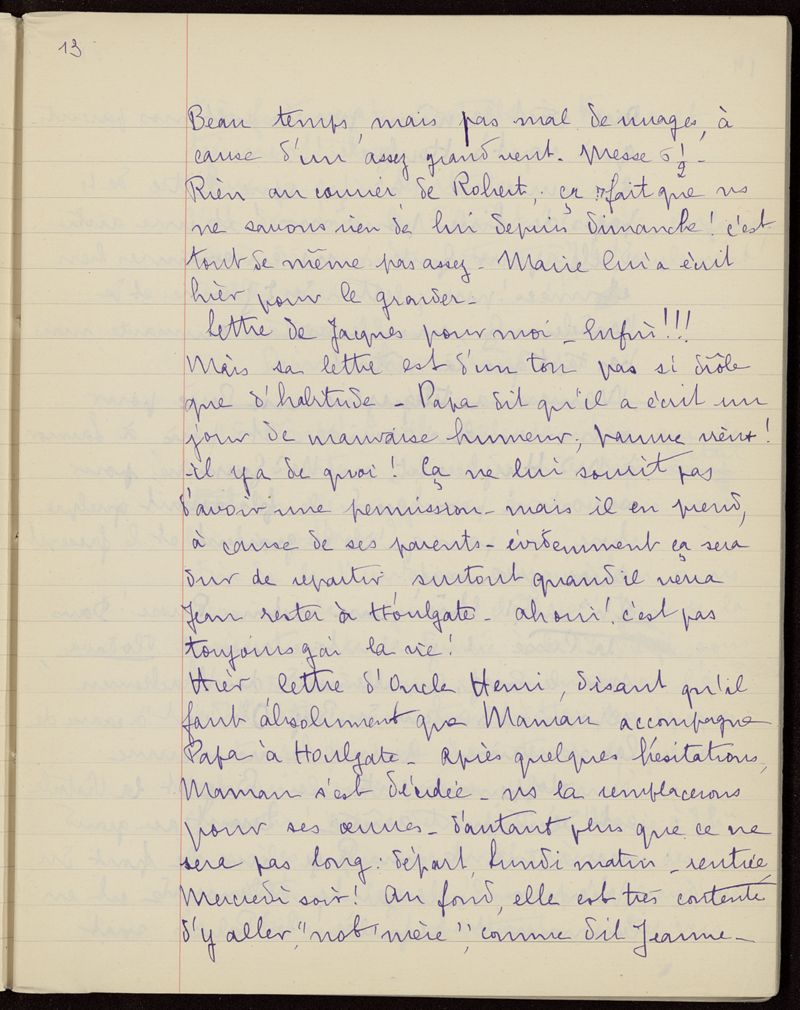 13
Beau temps, mais pas mal de nuages, à
cause d'un assez grand vent. Messe 6 1/2 -
Rien au courrier de Robert, ça fait que ns
ne savons rien de lui depuis dimanche ! c'est
tout de même pas assez - Marie lui a écrit
hier pour le gronder -
Lettre de Jacques pour moi - Enfin !!!
Mais sa lettre est d'un ton pas si drôle
que d'habitude - Papa dit qu'il a écrit un
jour de mauvaise humeur ; pauvre vieux !
il y a de quoi ! Ça ne lui sourit pas
d'avoir une permission - mais il en prend,
à cause de ses parents - évidemment ça sera
dur de repartir surtout quand il verra
Jean rester à Houlgate - ah oui ! c'est pas
toujours gai la vie !
Hier lettre d'Oncle Henri, disant qu'il
faut absolument que Maman accompagne
Papa à Houlgate - après quelques hésitations,
Maman s'est décidée - ns la remplacerons
pour ses œuvres - d'autant plus que ce ne
sera pas long : départ, Lundi matin - rentrée
Mercredi soir ! Au fond, elle est très contente
d'y aller, "not' mère", comme dit Jeanne -